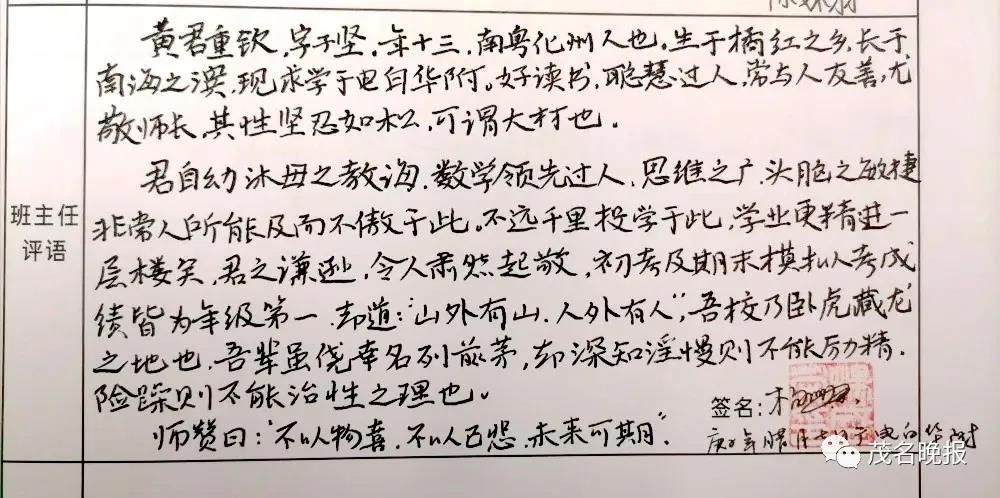 黄君重钦，字子坚，年十三，南粤化州人也。生于橘红之乡，长于
南海之滨，现求学于电白华附。好读书，聪慧过人，常与人友善，尤
敬师长，其性坚忍如松，可谓大材也。
君自幼沐母之教诲，数学领先过人，思维之广，头脑之敏捷
非常人所能及而不傲于此。不远千里投学于此，学业更精进一
层楼矣，君之谦逊，令人肃然起敬，初考及期末模拟人考成
绩皆为年级第一，却道：“山外有山，人外有人”，吾校乃卧虎藏龙
之地也，吾辈虽侥幸名列前茅，却深知淫慢则不能励精，
险躁则不能治性之理也。
师赞曰：“不以物喜，不以己悲，未来可期”。
班主任
评语
签名：
茂名晚报